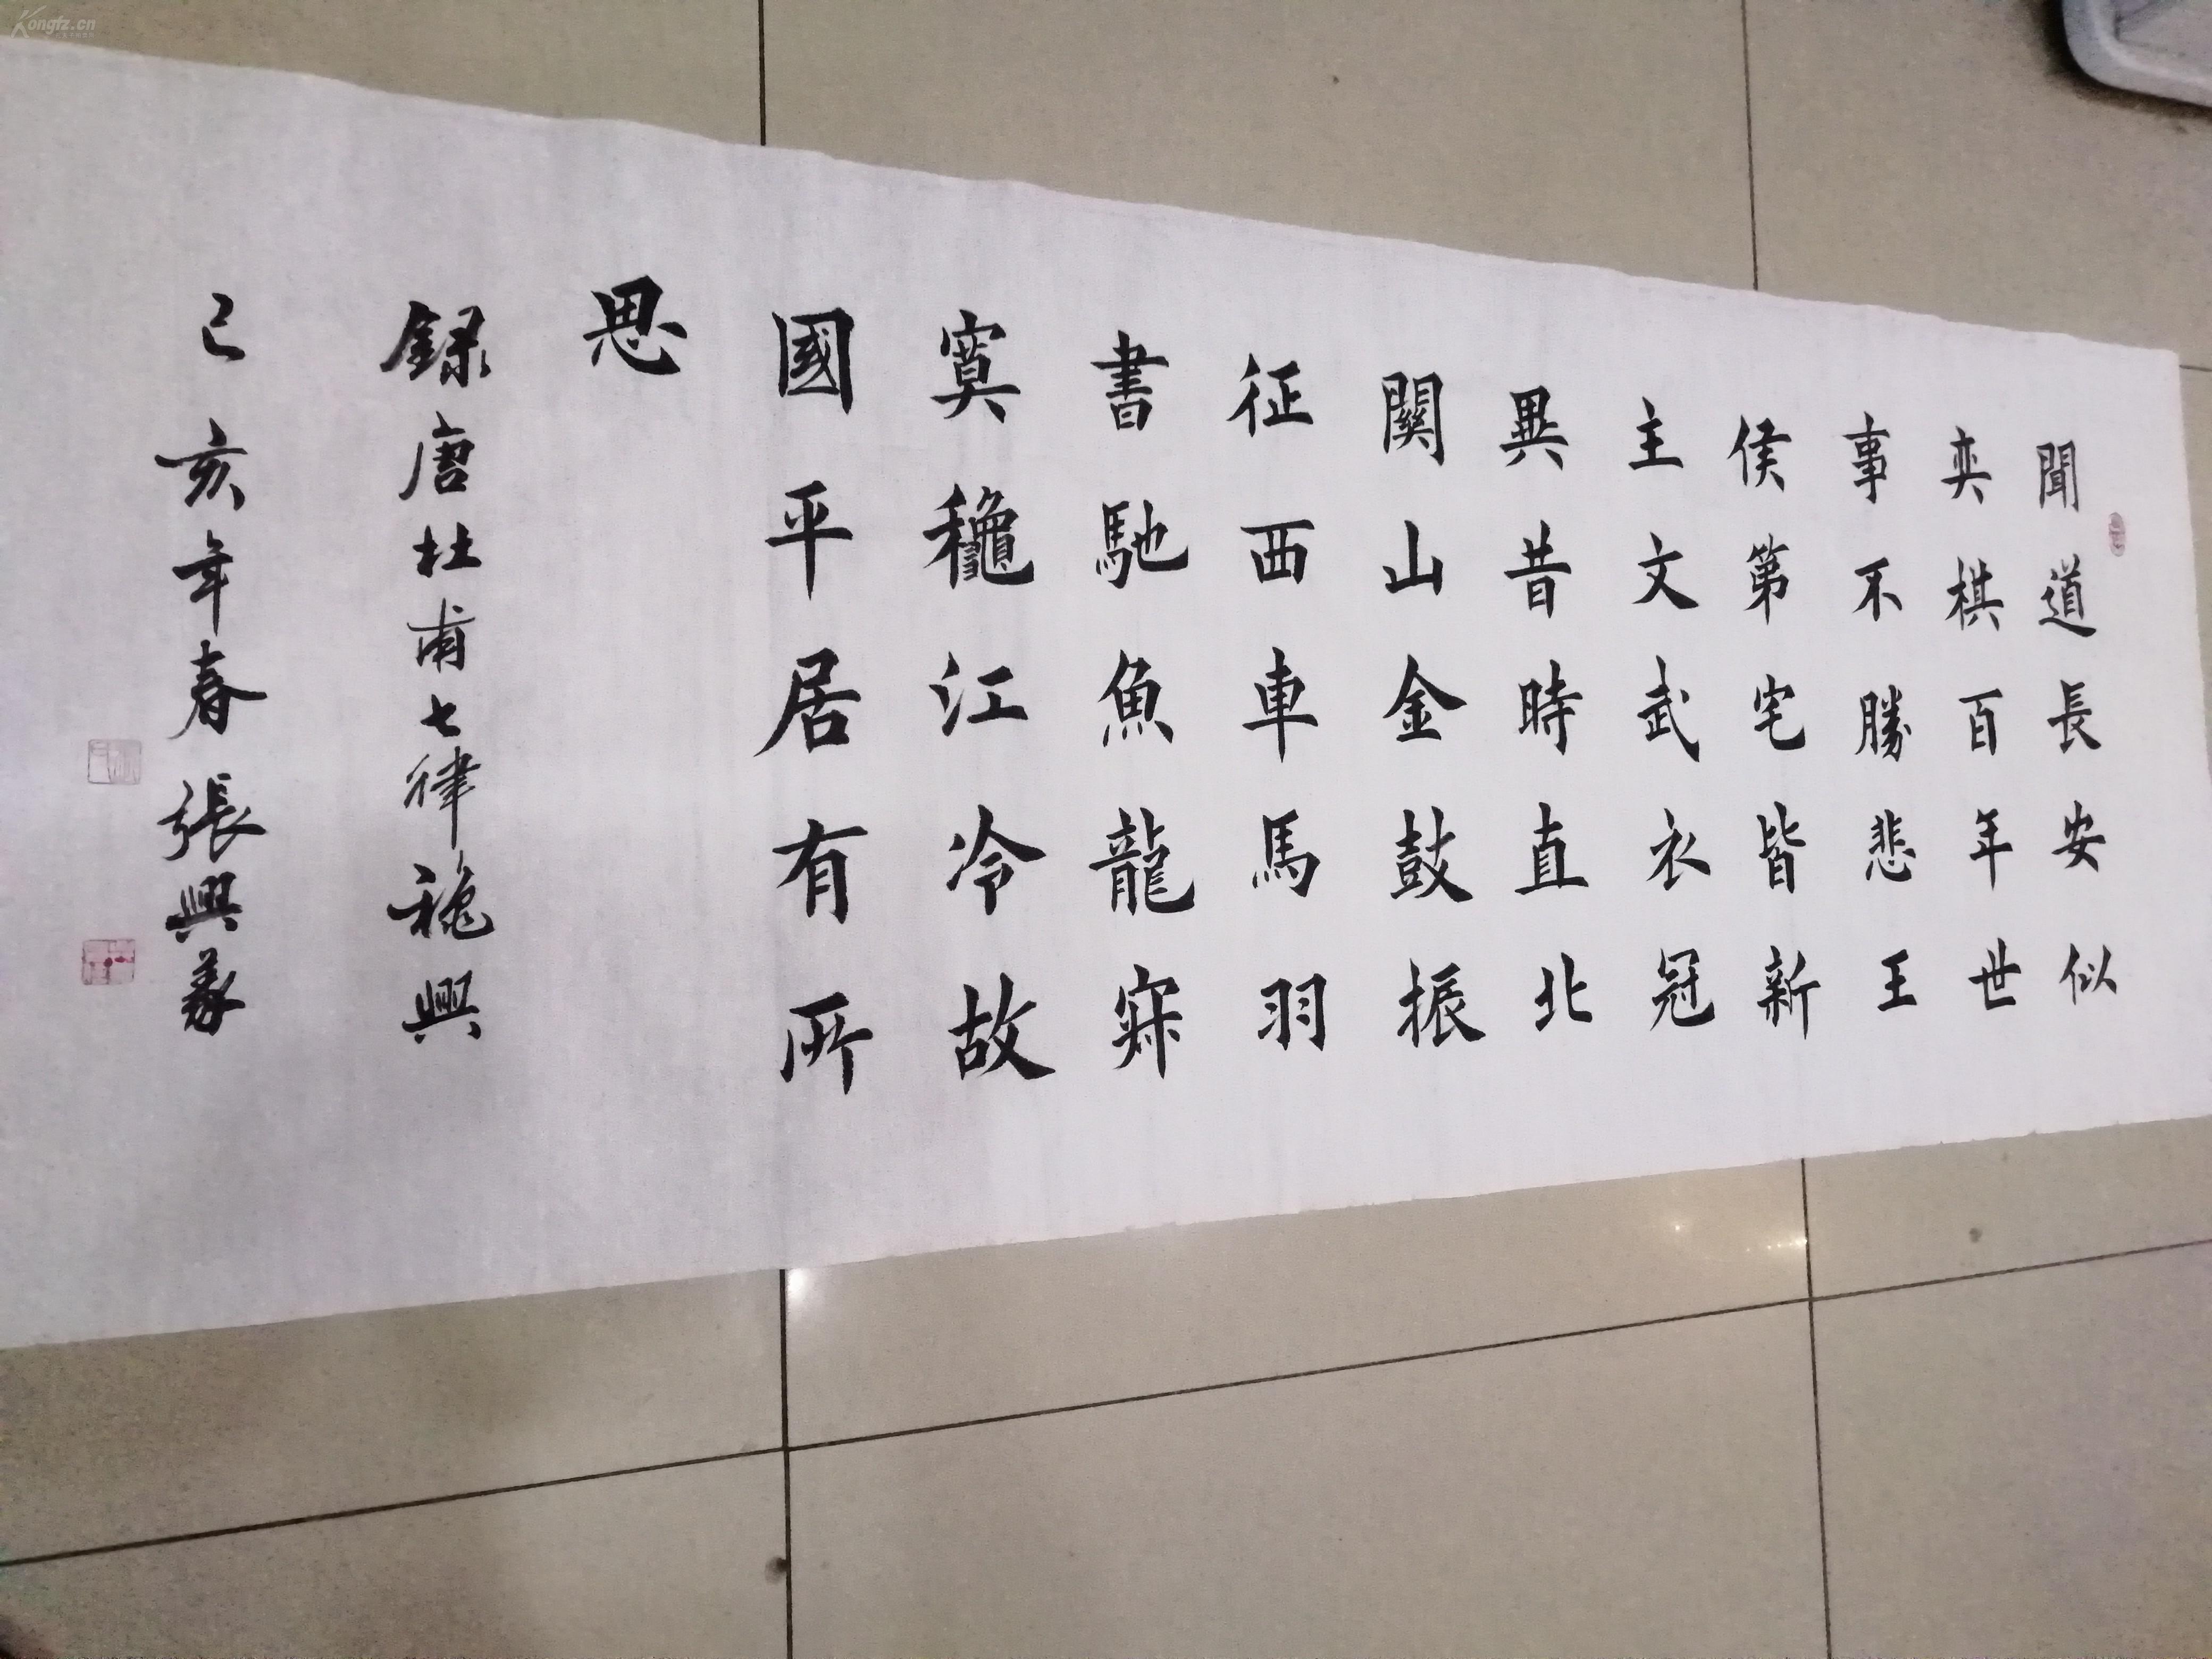 聞道長安似
奕棋百年世
事不勝悲王
侯第宅皆新
主文武衣冠
異昔時直北
關山金鼓振
征西車馬羽
書馳魚龍寂
寞龝江冷故
國平居有所
思
録唐杜甫七律秋興
己亥年春張興義
Kongfz.cn